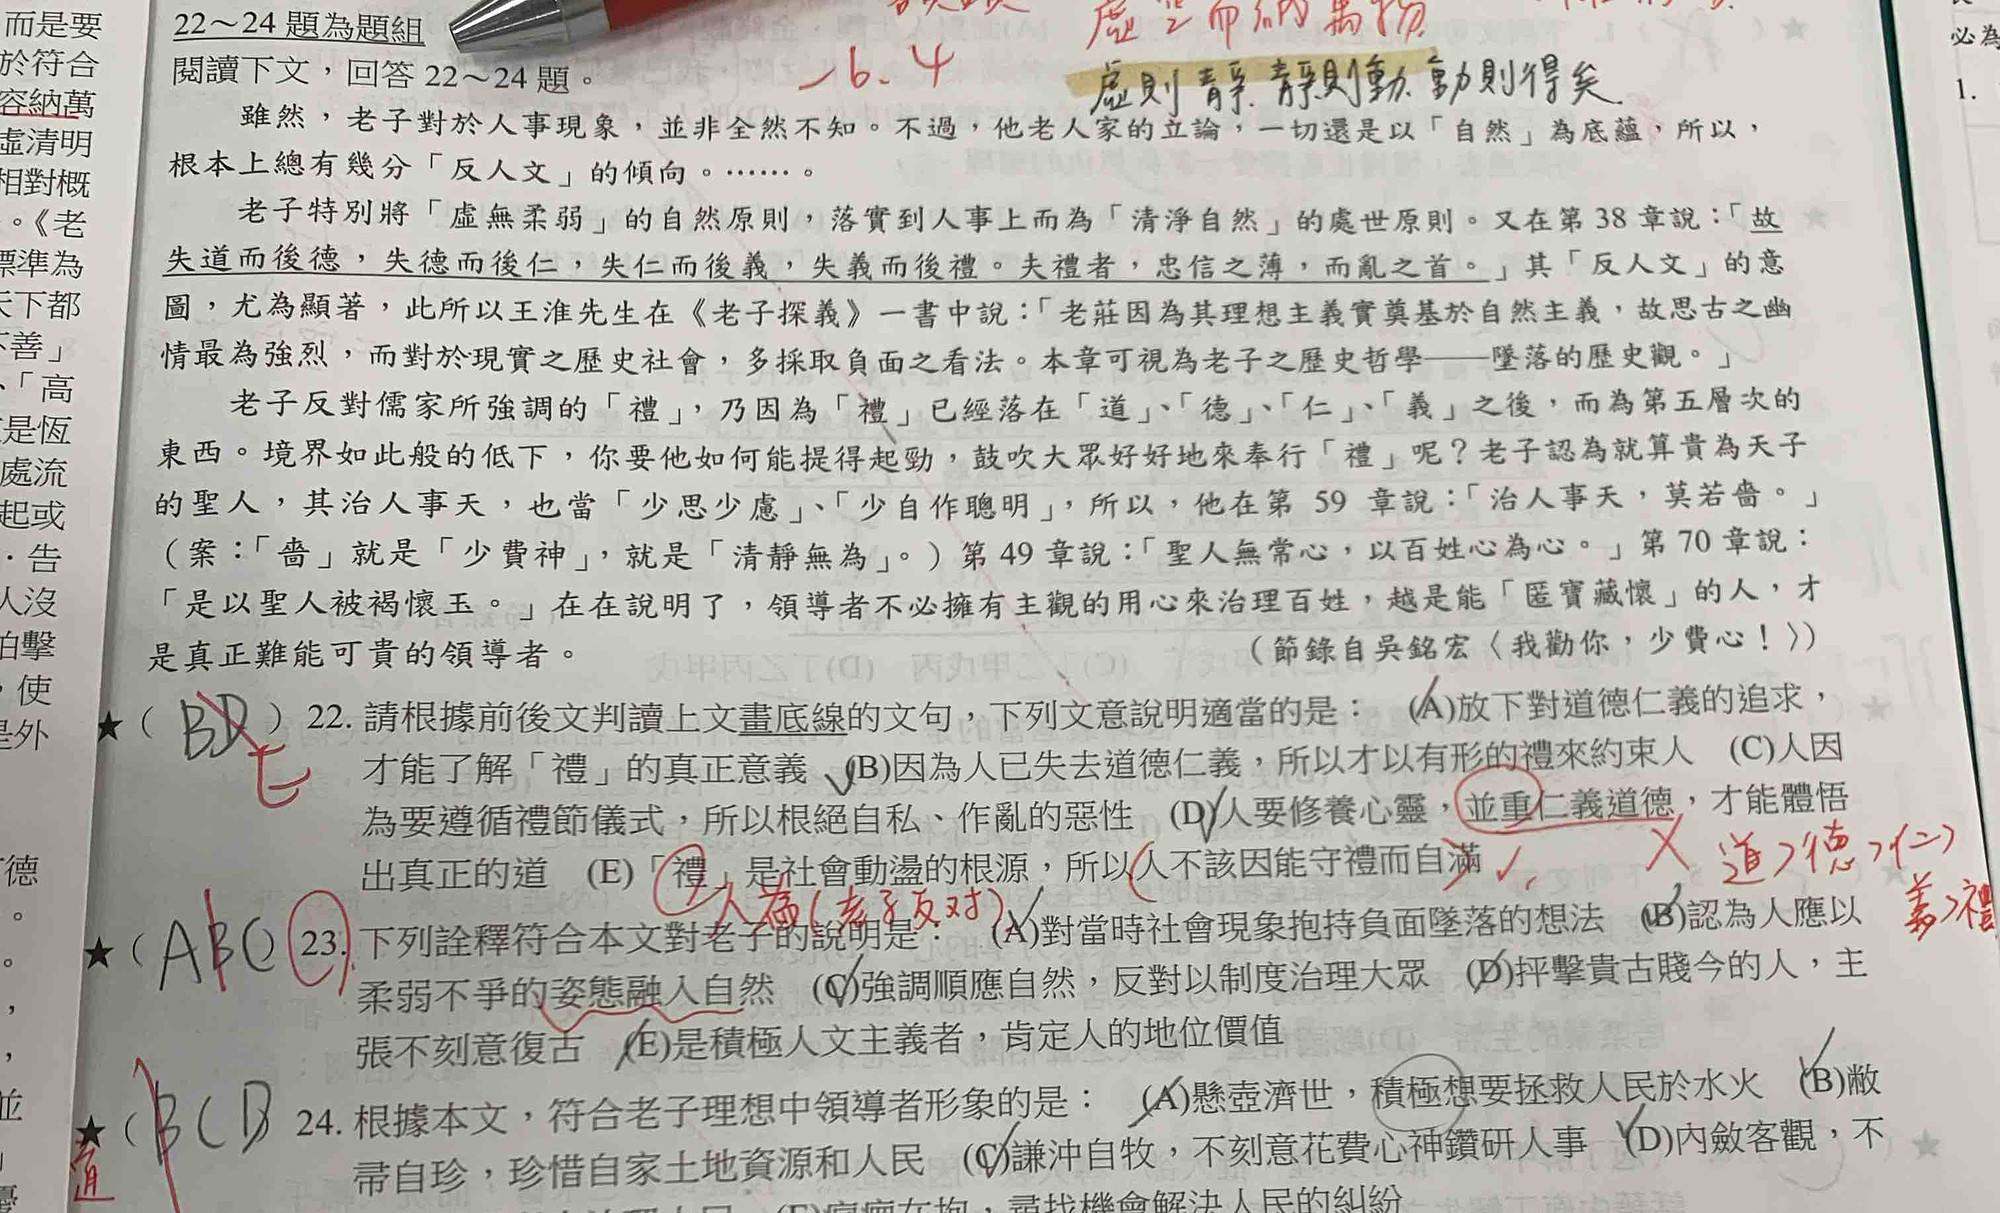 而是要
於符合
容納萬
虛清明
相對概
。《老
標準為
天下都
不善」
、「高
是恆
處流
起或
．告
人沒
拍擊
，使
是外
德
。
。
，
，
並
」
優
22～24 題為題組
虛空而納萬物
閱讀下文，回答 22～24 題。
-6.4
虛則靜.靜則動.動則得矣.
必為
1.
雖然，老子對於人事現象，並非全然不知。不過，他老人家的立論，一切還是以「自然」為底蘊，所以，
根本上總有幾分「反人文」的傾向。……。
老子特別將「虛無柔弱」的自然原則，落實到人事上而為「清淨自然」的處世原則。又在第 38 章說：「故
失道而後德，失德而後仁，失仁而後義，失義而後禮。夫禮者，忠信之薄，而亂之首。」其「反人文」的意
圖，尤為顯著，此所以王淮先生在《老子探義》一書中說：「老莊因為其理想主義實奠基於自然主義，故思古之幽
情最為強烈，而對於現實之歷史社會，多採取負面之看法。本章可視為老子之歷史哲學——墜落的歷史觀。」
老子反對儒家所強調的「禮」，乃因為「禮」已經落在「道」、「德」、「仁」、「義」之後，而為第五層次的
東西。境界如此般的低下，你要他如何能提得起勁，鼓吹大眾好好地來奉行「禮」呢？老子認為就算貴為天子
的聖人，其治人事天，也當「少思少慮」、「少自作聰明」，所以，他在第 59 章說：「治人事天，莫若嗇。」
（案：「嗇」就是「少費神」，就是「清靜無為」。）第 49 章說：「聖人無常心，以百姓心為心。」第 70 章說：
「是以聖人被褐懷玉。」在在說明了，領導者不必擁有主觀的用心來治理百姓，越是能「匿寶藏懷」的人，才
是真正難能可貴的領導者。
（節錄自吳銘宏〈我勸你，少費心！〉）
★（ BD ）22. 請根據前後文判讀上文畫底線的文句，下列文意說明適當的是： (A)放下對道德仁義的追求，
E
才能了解「禮」的真正意義 (B)因為人已失去道德仁義，所以才以有形的禮來約束人 (C)人因
為要遵循禮節儀式，所以根絕自私、作亂的惡性 (D)人要修養心靈，並重仁義道德，才能體悟
出真正的道 (E)「禮」是社會動盪的根源，所以人不該因能守禮而自滿
道>德>仁>
義>禮
人為(老子反对)
★（ABC）23. 下列詮釋符合本文對老子的說明是： (A)對當時社會現象抱持負面墜落的想法 (B)認為人應以
柔弱不爭的姿態融入自然 (C)強調順應自然，反對以制度治理大眾 (D)抨擊貴古賤今的人，主
張不刻意復古 (E)是積極人文主義者，肯定人的地位價值
★（BCD 24. 根據本文，符合老子理想中領導者形象的是： (A)懸壺濟世，積極想要拯救人民於水火 (B)敝
帚自珍，珍惜自家土地資源和人民 (C)謙沖自牧，不刻意花費心神鑽研人事 (D)內斂客觀，不
道
(E)痌瘝在抱，尋找機會解決人民的糾紛